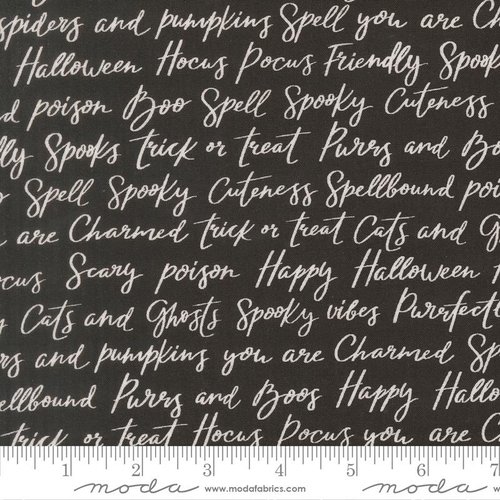 spiders and pumpkins Spell you are Ch
Halloween Hocus Pocus Friendly Spook
d poison Boo Spell Spooky Cuteness
lly Spooks trick or treat Purrs and Bo
Spell Spooky Cuteness Spellbound poi
are Charmed trick or treat Cats and G
ocus Scary poison Happy Halloween
y Cats and Ghosts Spooky vibes Purrfectl
rs and pumpkins you are Charmed Sp
ellbound Purrs and Boos Happy Hallo
trick or treat Hocus Pocus you are C
1 2 3 4 5 6 7
moda www.modafabrics.com moda